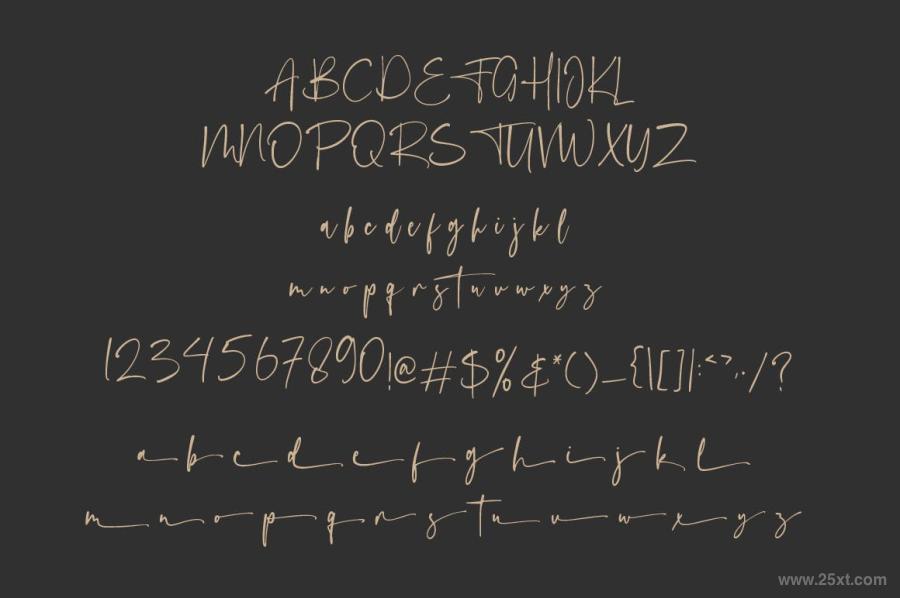 ABCDEFGHIJKL
MNOPQRSTUVWXYZ
abcdefghijkl
mnopqrstuvwxyz
1234567890!@#$%&*()_{|[]|:<>,.·/?
abcdefghijkl
mnopqrstuvwxyz
www.25xt.com